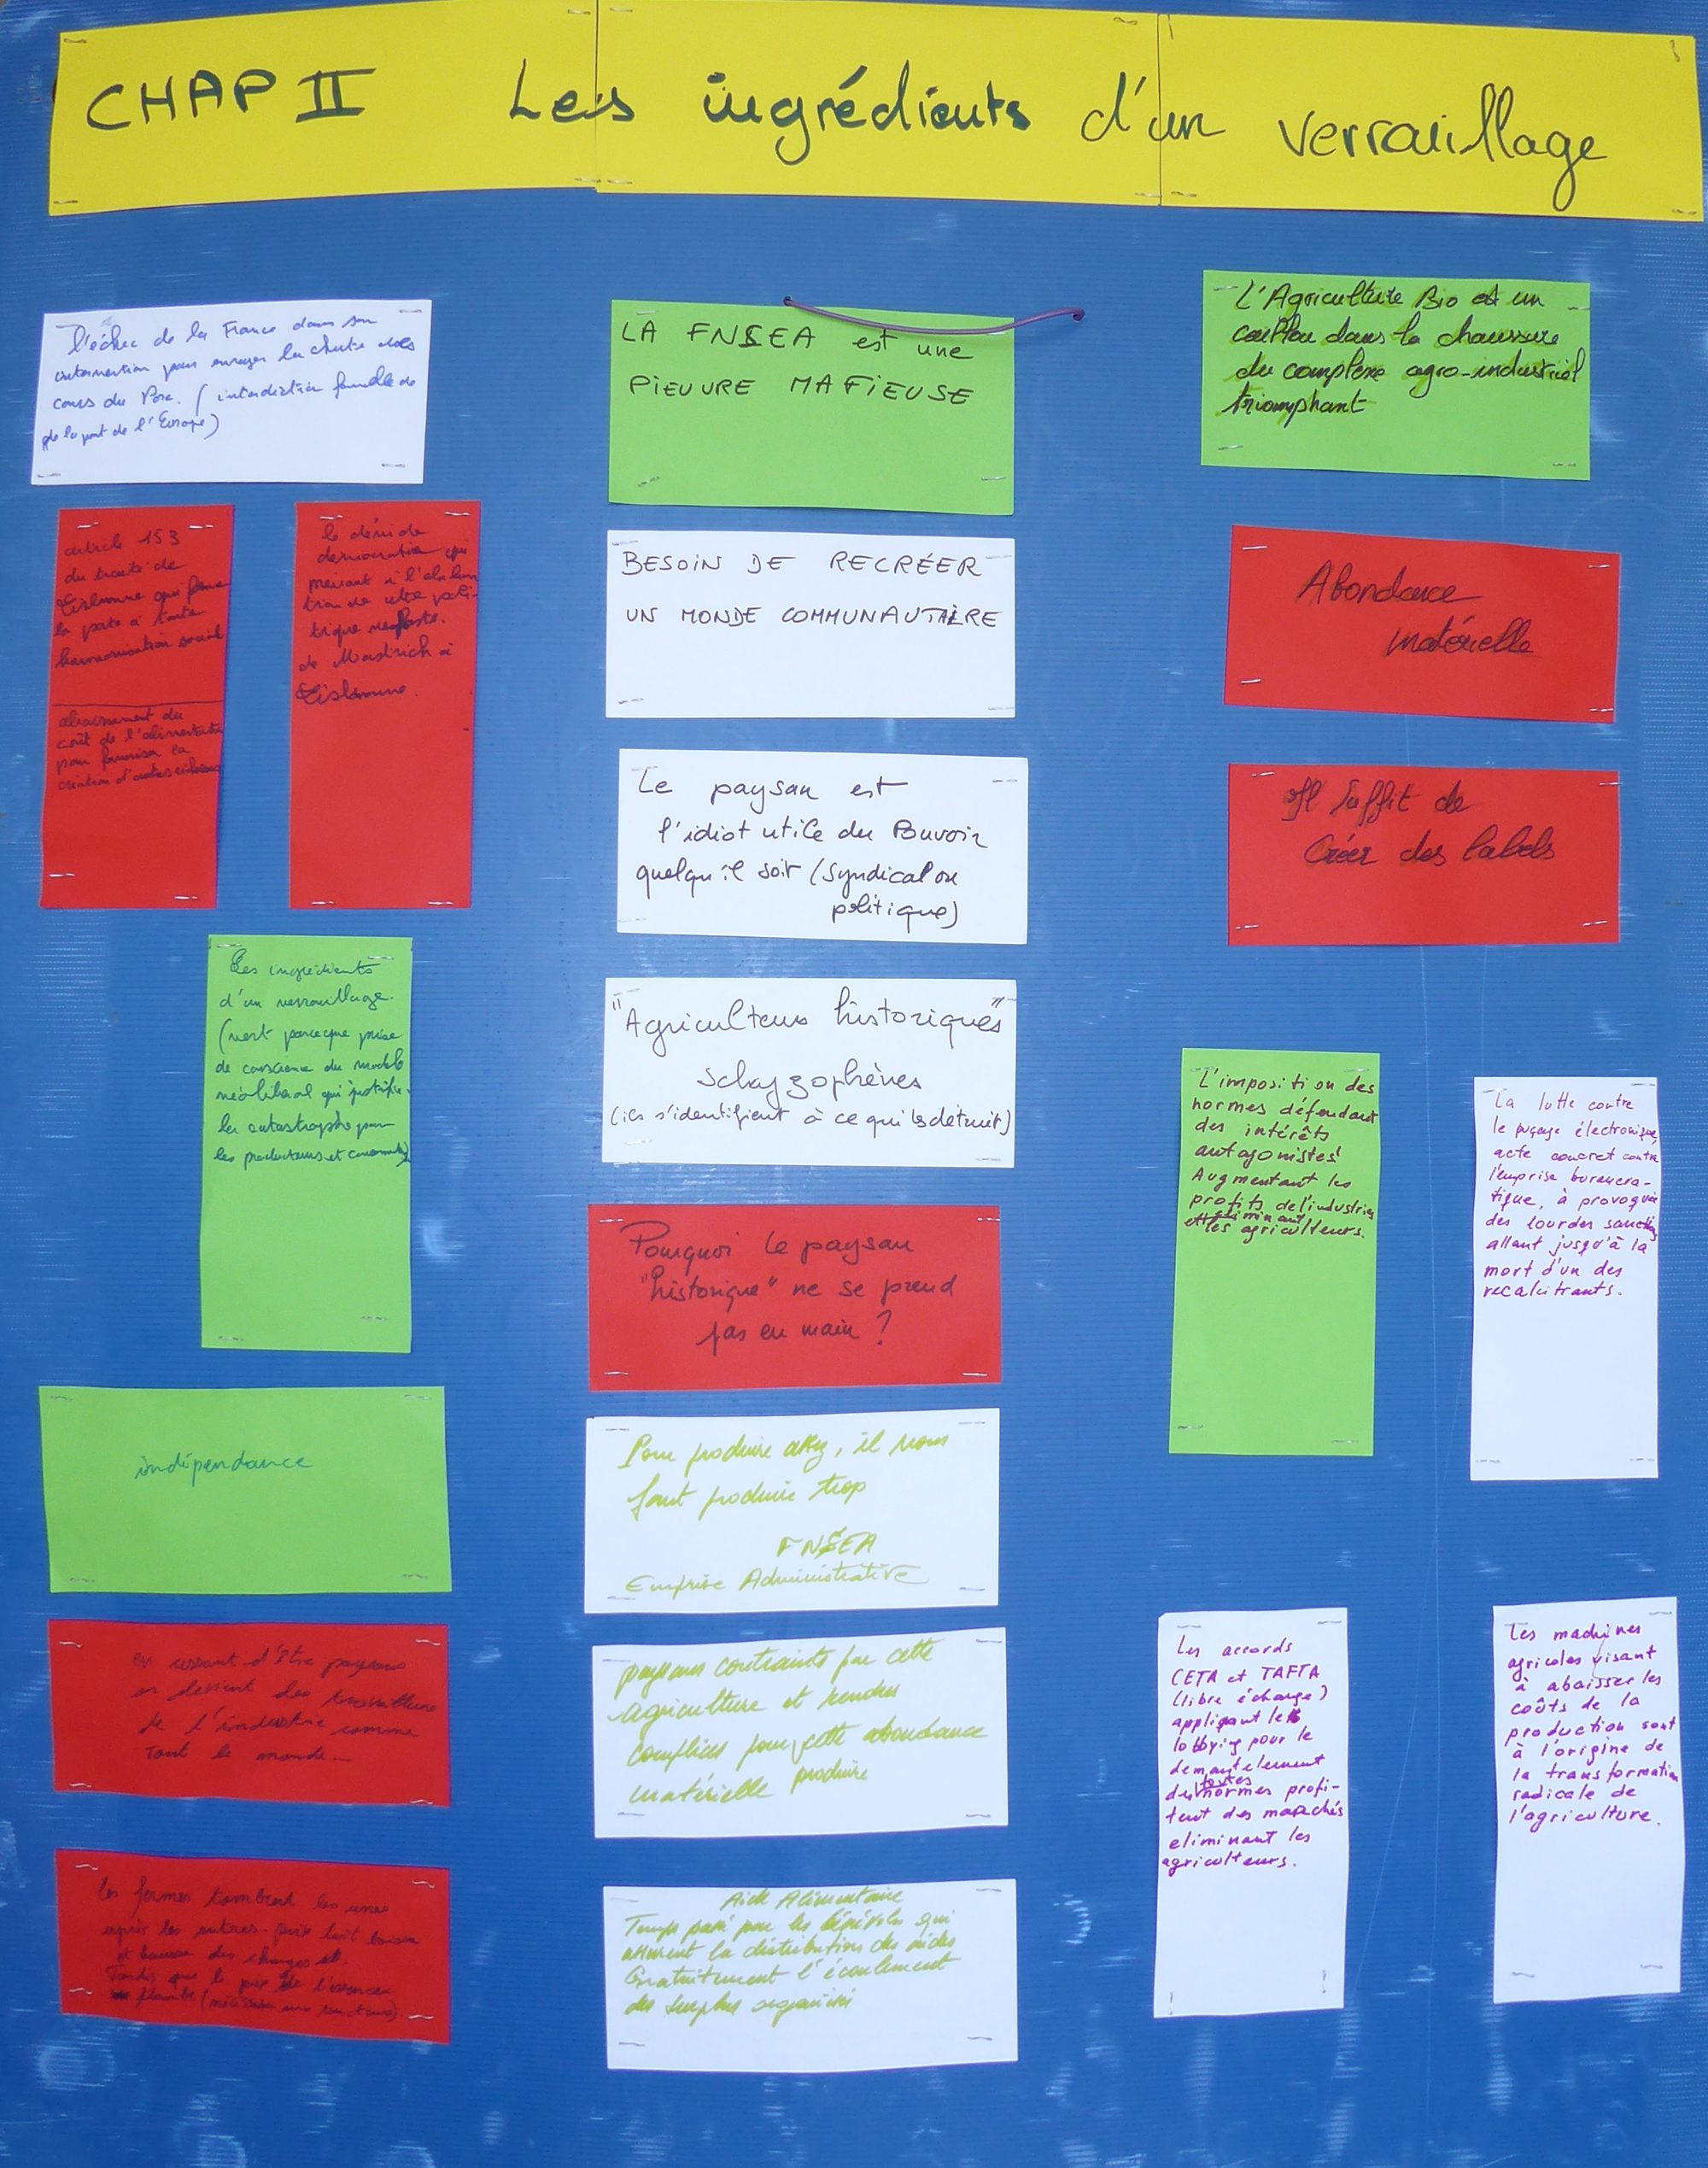 CHAP II Les ingrédients d'un verrouillage
l'échec de la France dans son
intervention pour enrayer la chute des
cours du Porc. (interdiction formelle de
de la part de l'Europe)
article 153
du traité de
Lisbonne qui ferme
la porte à toute
harmonisation social
abaissement du
coût de l'alimentation
pour favoriser la
création d'autres
le déni de
démocratie qui
menant à l'élabora
tion de cette poli-
tique nefaste.
de Mastrich à
Lisbonne.
Les ingrédients
d'un verrouillage.
(vert parceque prise
de conscience du modèle
néolibéral qui justifie
la catastrophe pour
les producteurs et
indépendance
en cessant d'être paysans
on devient des travailleurs
de l'industrie comme
tout le monde
les fermes tombent les unes
après les autres. prix lait baisse
et hausse des charges et
Tandis que le prix de l'essence
flambe
LA FNSEA est une
PIEUVRE MAFIEUSE
BESOIN DE RECRÉER
UN MONDE COMMUNAUTAIRE
Le paysan est
l'idiot utile du Pouvoir
quelqu'il soit (syndical ou
politique)
"Agriculteurs historiques"
schyzophrènes
(ils s'identifient à ce qui les détruit)
Pourquoi le paysan
"historique" ne se prend
pas en main ?
Pour produire assez, il nous
faut produire trop
FNSEA
Emprise Administrative
paysans contraints par cette
agriculture et rendus
complices pour cette abondance
matérielle produire
Aide Alimentaire
Temps passé pour les bénévoles qui
assurent la distribution des aides
Gratuitement l'écoulement
des surplus organisés
L'Agriculture Bio est un
caillou dans la chaussure
du complexe agro-industriel
triomphant
Abondance
matérielle
Il suffit de
Créer des labels
L'imposition des
normes défendant
des intérêts
antagonistes!
Augmentant les
profits de l'industries
éliminant
et les agriculteurs.
La lutte contre
le puçage électronique,
acte concret contre
l'emprise bureucra-
tique, à provoquée
des lourdes sanctions
allant jusqu'à la
mort d'un des
recalcitrants.
Les accords
CETA et TAFTA
(libre échange)
appliqant les
lobbying pour le
demantelement
toutes
des normes profi-
tent des marchés
eliminant les
agriculteurs.
Les machines
agricoles visant
à abaisser les
coûts de la
production sont
à l'origine de
la transformation
radicale de
l'agriculture.